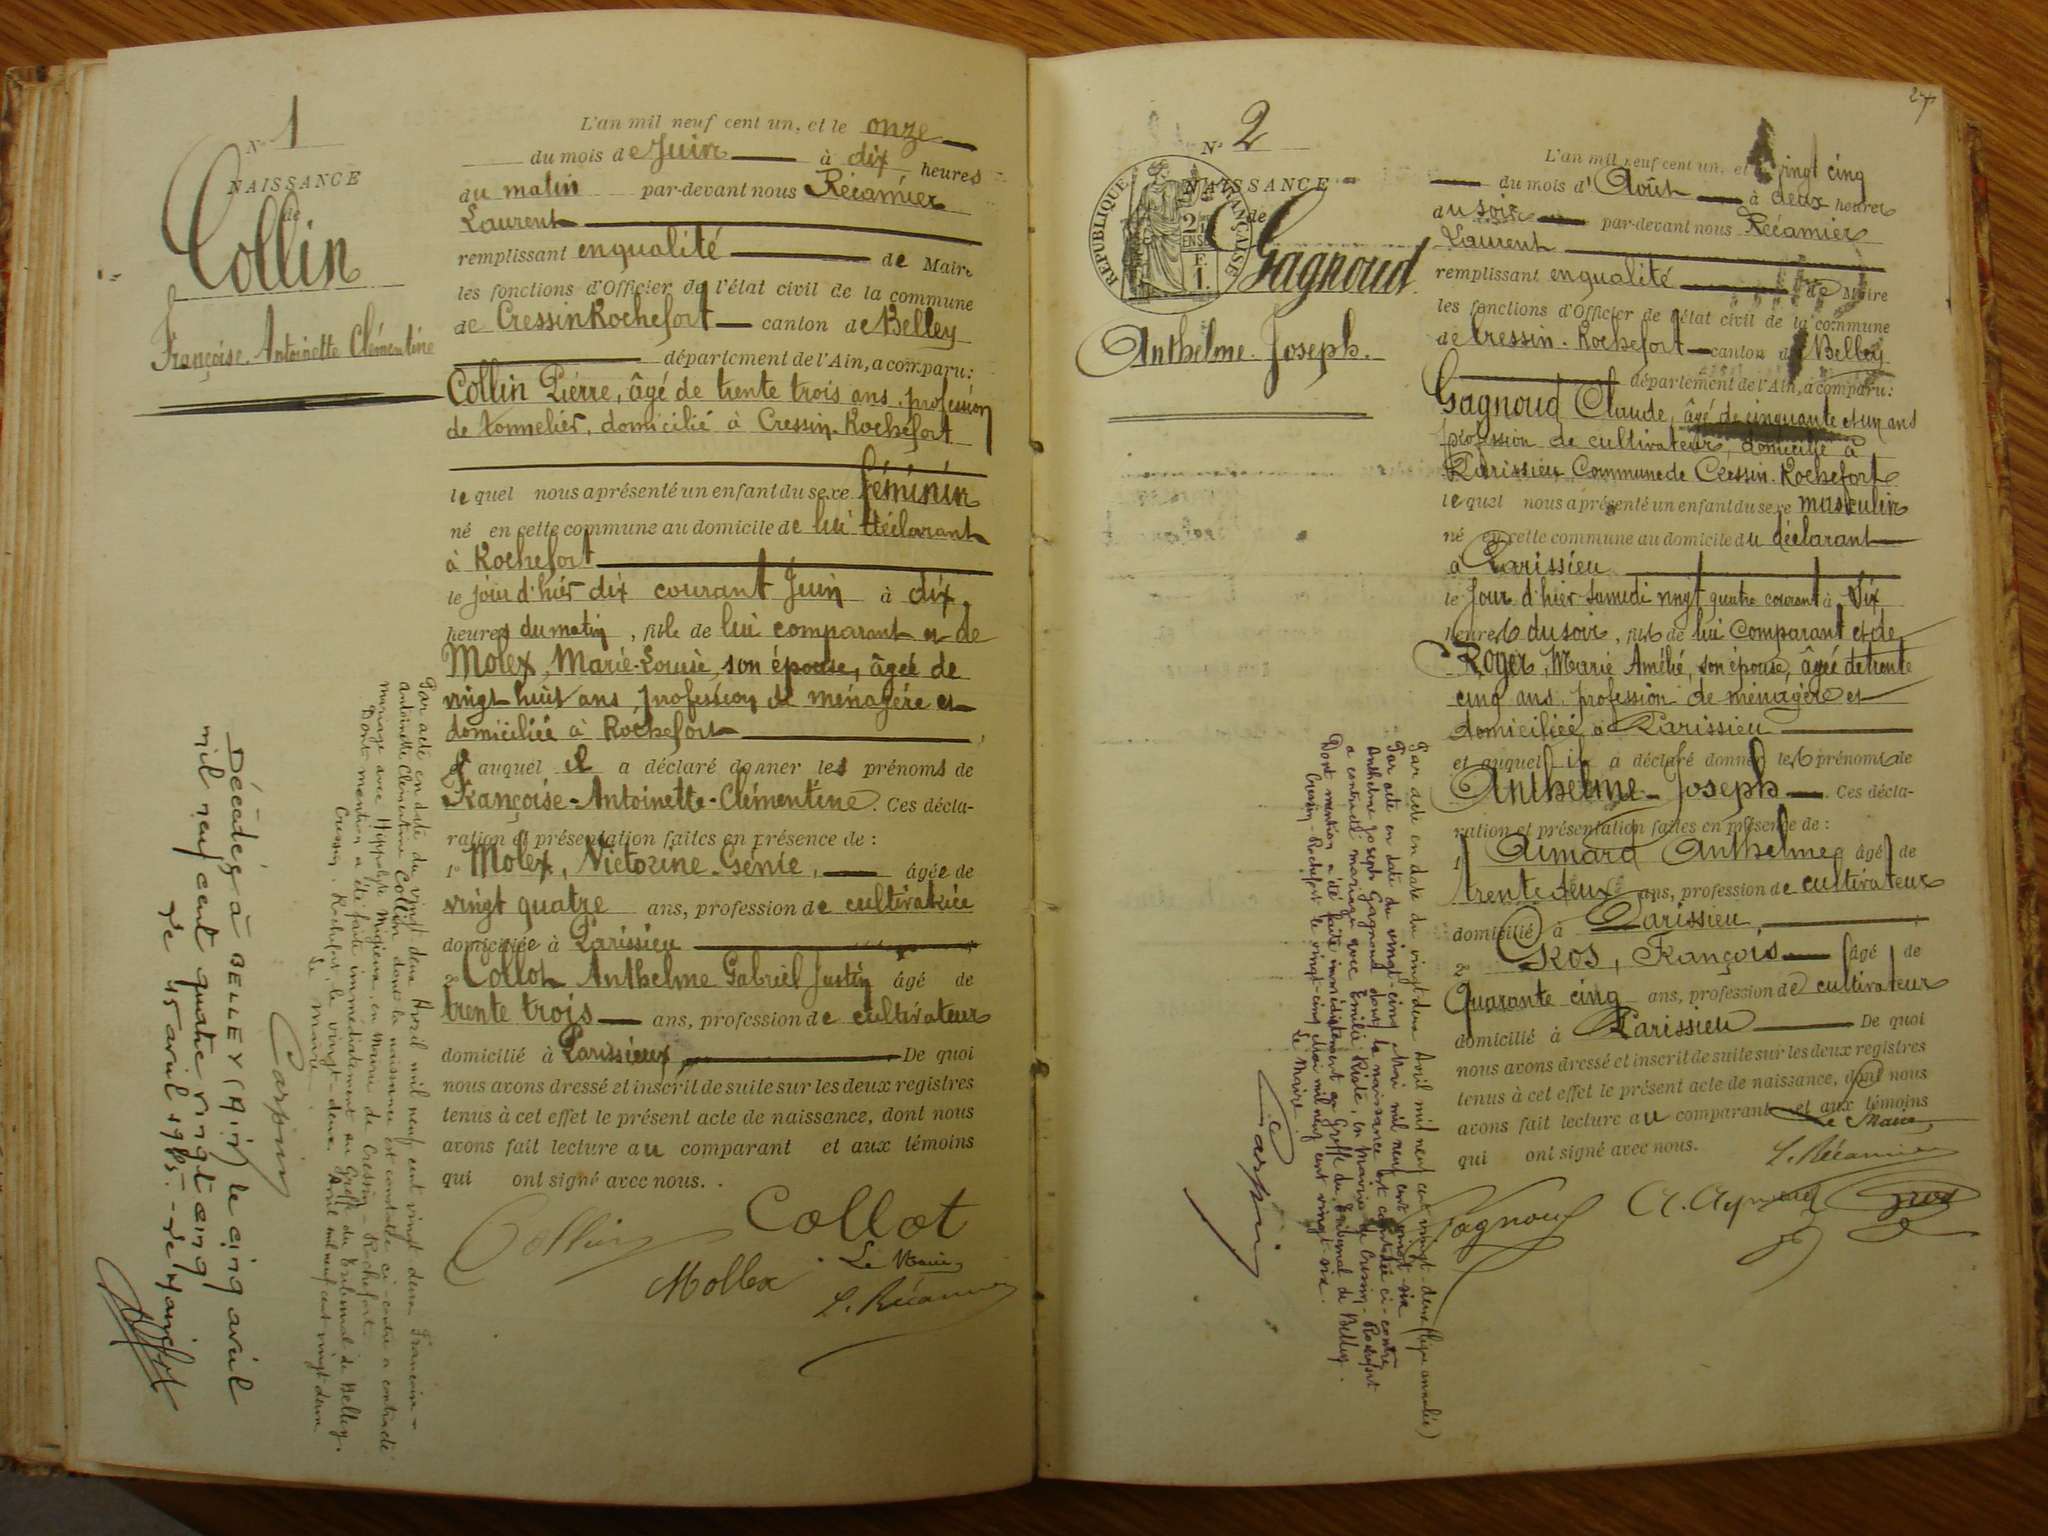 N° 1
NAISSANCE
de
Collin
Françoise Antoinette Clémentine
L'an mil neuf cent un, et le onze
du mois de Juin à dix heures
du matin par-devant nous Récamier
Laurent
remplissant en qualité de Maire
les fonctions d'Officier de l'état civil de la commune
de Cressin Rochefort canton de Belley
département de l'Ain, a comparu:
Collin Pierre, âgé de trente trois ans, profession
de tonnelier, domicilié à Cressin-Rochefort
lequel nous a présenté un enfant du sexe féminin
né en cette commune au domicile de lui déclarant
à Rochefort
le jour d'hier dix courant Juin à dix
heures du matin, fille de lui comparant et de
Molex, Marie-Louise, son épouse, âgée de
vingt huit ans, profession de ménagère et
domiciliée à Rochefort
et auquel il a déclaré donner les prénoms de
Françoise-Antoinette-Clémentine. Ces décla-
ration et présentation faites en présence de :
1° Molex, Victorine Génie, âgée de
vingt quatre ans, profession de cultivatrice
domiciliée à Parissieu
2° Collot Anthelme Gabriel Justin âgé de
trente trois ans, profession de cultivateur
domicilié à Parissieux, De quoi
nous avons dressé et inscrit de suite sur les deux registres
tenus à cet effet le présent acte de naissance, dont nous
avons fait lecture au comparant et aux témoins
qui ont signé avec nous.
Collin
Collot
Mollex
Le Maire
L. Récamier
Par acte en date du vingt deux Avril mil neuf cent vingt deux Françoise-
Antoinette Clémentine Collin dont la naissance est constatée ci-contre a contracté
mariage avec Hippolyte Migieux, en Mairie de Cressin-Rochefort.
Dont mention a été faite immédiatement au Greffe du Tribunal de Belley.
Cressin-Rochefort, le vingt-deux Avril mil neuf cent vingt deux
Le Maire
Carpin
Décédée à BELLEY (Ain) le cinq avril
mil neuf cent quatre vingt cinq
Le 15 avril 1985. - Le Maire
27
N° 2
NAISSANCE
de
REPUBLIQUE FRANÇAISE
Gagnoud
Anthelme Joseph.
L'an mil neuf cent un, et vingt cinq
du mois d'Août à deux heures
du soir par-devant nous Récamier
Laurent
remplissant en qualité de Maire
les fonctions d'Officier de l'état civil de la commune
de Cressin-Rochefort canton de Belley
département de l'Ain, a comparu:
Gagnoud Claude, âgé de cinquante et un ans
profession de cultivateur, domicilié à
Parissieu Commune de Cressin-Rochefort
lequel nous a présenté un enfant du sexe masculin
né en cette commune au domicile du déclarant
à Parissieu
le Jour d'hier Samedi vingt quatre courant à Six
heures du soir, fils de lui comparant et de
Roger, Marie Amélie, son épouse, âgée de trente
cinq ans, profession de ménagère et
domiciliée à Parissieu
et auquel il a déclaré donner les prénoms de
Anthelme-Joseph. Ces décla-
ration et présentation faites en présence de :
1° Aimard Anthelme âgé de
trente deux ans, profession de cultivateur
domicilié à Parissieu,
2° Gros, François âgé de
Quarante cinq ans, profession de cultivateur
domicilié à Parissieu De quoi
nous avons dressé et inscrit de suite sur les deux registres
tenus à cet effet le présent acte de naissance, dont nous
avons fait lecture au comparant et aux témoins
qui ont signé avec nous.
Le Maire,
L. Récamier
Gagnoud
A. Aymard
Gros
Par acte en date du vingt deux Avril mil neuf cent vingt-deux (ligne annulée)
Par acte en date du vingt-cinq Mai mil neuf cent vingt-six
Anthelme Joseph Gagnoud dont la naissance est constatée ci-contre
a contracté mariage avec Emilie Riste, en Mairie de Cressin-Rochefort
Dont mention a été faite immédiatement au Greffe du Tribunal de Belley.
Cressin-Rochefort le vingt-cinq Mai mil neuf cent vingt-six.
Le Maire
Carpin